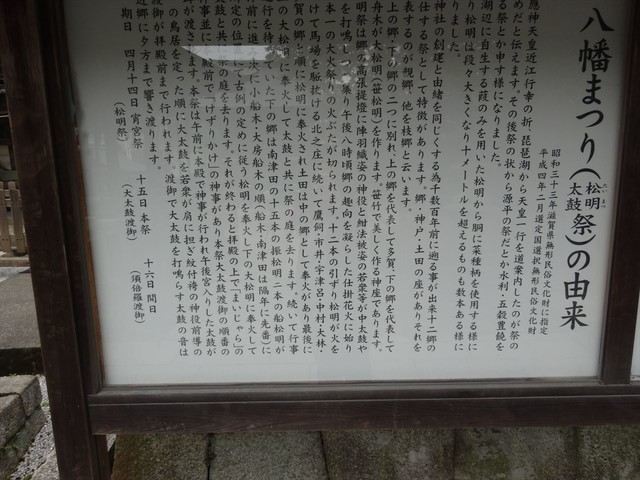 八幡まつり(松明太鼓祭)の由来
たいまつ
昭和三十三年滋賀県無形民俗文化財に指定
平成四年二月選定国選択無形民俗文化財
應神天皇近江行幸の折、琵琶湖から天皇一行を道案内したのが祭の
めだと伝えます。その後祭の状から源平の祭だとか水利・五穀豊饒を
る祭とか申す様になりました。
湖辺に自生する葭のみを用いた松明から胴に菜種柄を使用する様に
り松明は段々大きくなり十メートルを超えるものも数本ある様に
りました。
神社の創建と由緒を同じくする為千数百年前に遡る事が出来十二郷の
仕する祭として特徴があります。郷・神戸・土田の座がありそれを
表するのが親郷、他を枝郷と云います。
上の郷・下の郷の二つに別れ、上の郷を代表して多賀、下の郷を代表して
舟木が大松明(笹松明)を作ります。笹竹で美しく作る神座であります。
明祭は郷の高張提燈に陣羽織姿の神役と紺法被姿の若衆等が中太鼓や
を打鳴しつつ繰り午後八時頃郷の趣向を凝らした仕掛花火に始り
本一の大火祭りの火ぶたが切られます。十二本の引ずり松明が火を
けて馬場を駈抜ける北之庄に続いて鷹飼・市井・宇津呂・中村・大林・
賀の郷と順に松明に奉火され土田は中の郷として奉火があり最後に
の大松明に奉火して太鼓と共に祭の庭を去ります。続いて行事
を待していた下の郷は南津田の十五本の振松明二本の船松明が
前に進み次に小船木・大房・船木の順(船木・南津田は隔年に先番)に
定の位置にて古例の定めに従う松明を奉火し下の大松明に奉火して
鼓と共に祭の庭を去ります。それが終わると拝殿の上で「まいじゃら」の
事並に拝殿前で「けずりかけ」の神事があり本祭大太鼓渡御の順番の
が渡されます。本祭は午前に本殿で神事が行われ午後宮入りした太鼓が
渡御が拝殿前まで行われます。渡御で大太鼓を打鳴らす太鼓の音は
の鳥居を定った順に大太鼓を若衆が肩に担ぎ紋付袴の神役前導の
近郷に夕方まで響き渡ります。
期日 四月十四日 宵宮祭 十五日 本祭 十六日 間日
(松明祭) (大太鼓渡御) (須倍羅渡御)